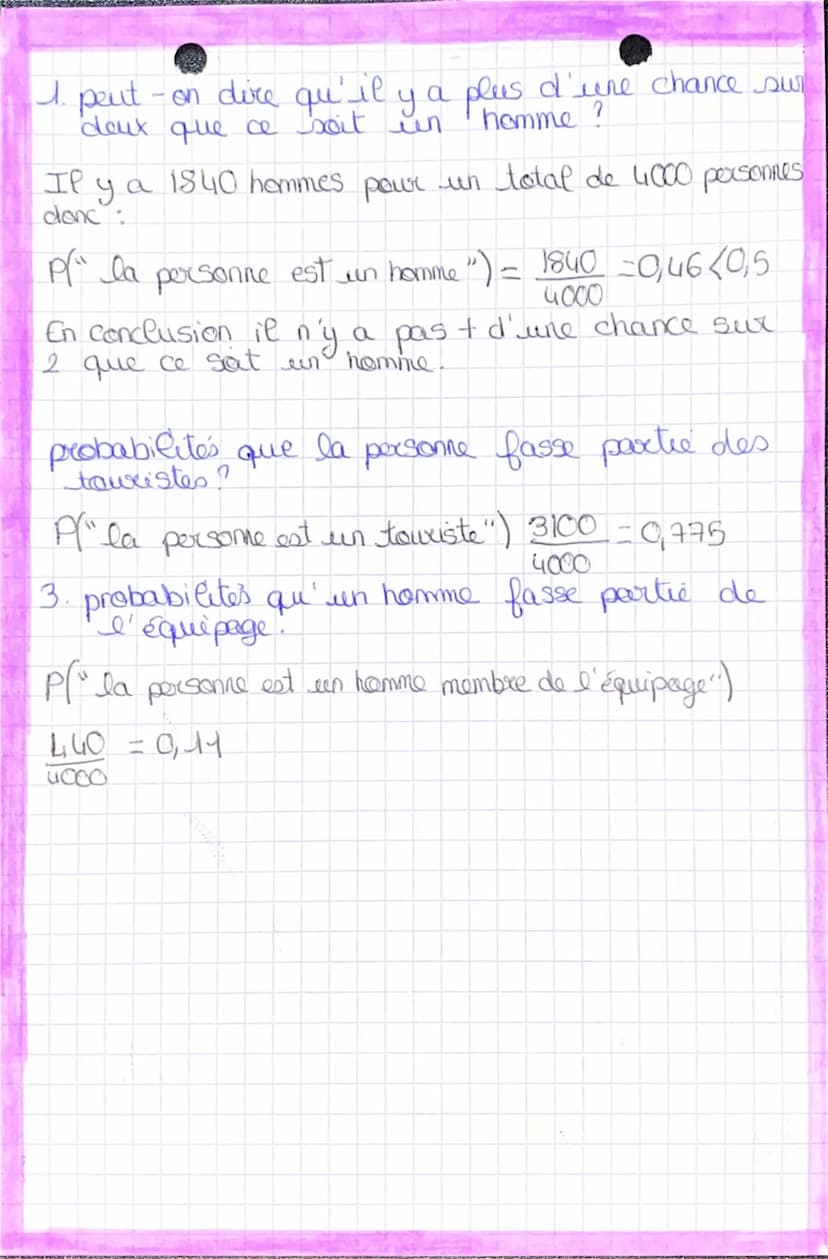 1. peut-on dire qu'il y a plus d'une chance sur
deux que ce soit un homme ?
Il y a 1840 hommes pour un total de 4000 personnes
donc :
P(" la personne est un homme ") = 1840/4000 = 0,46 < 0,5
En conclusion il n'y a pas + d'une chance sur
2 que ce soit un homme.
probabilités que la personne fasse partie des
touristes ?
P(" la personne est un touriste ") 3100/4000 = 0,775
3. probabilités qu'un homme fasse partie de
l'équipage.
P(" la personne est un homme membre de l'équipage ")
440/4000 = 0,11